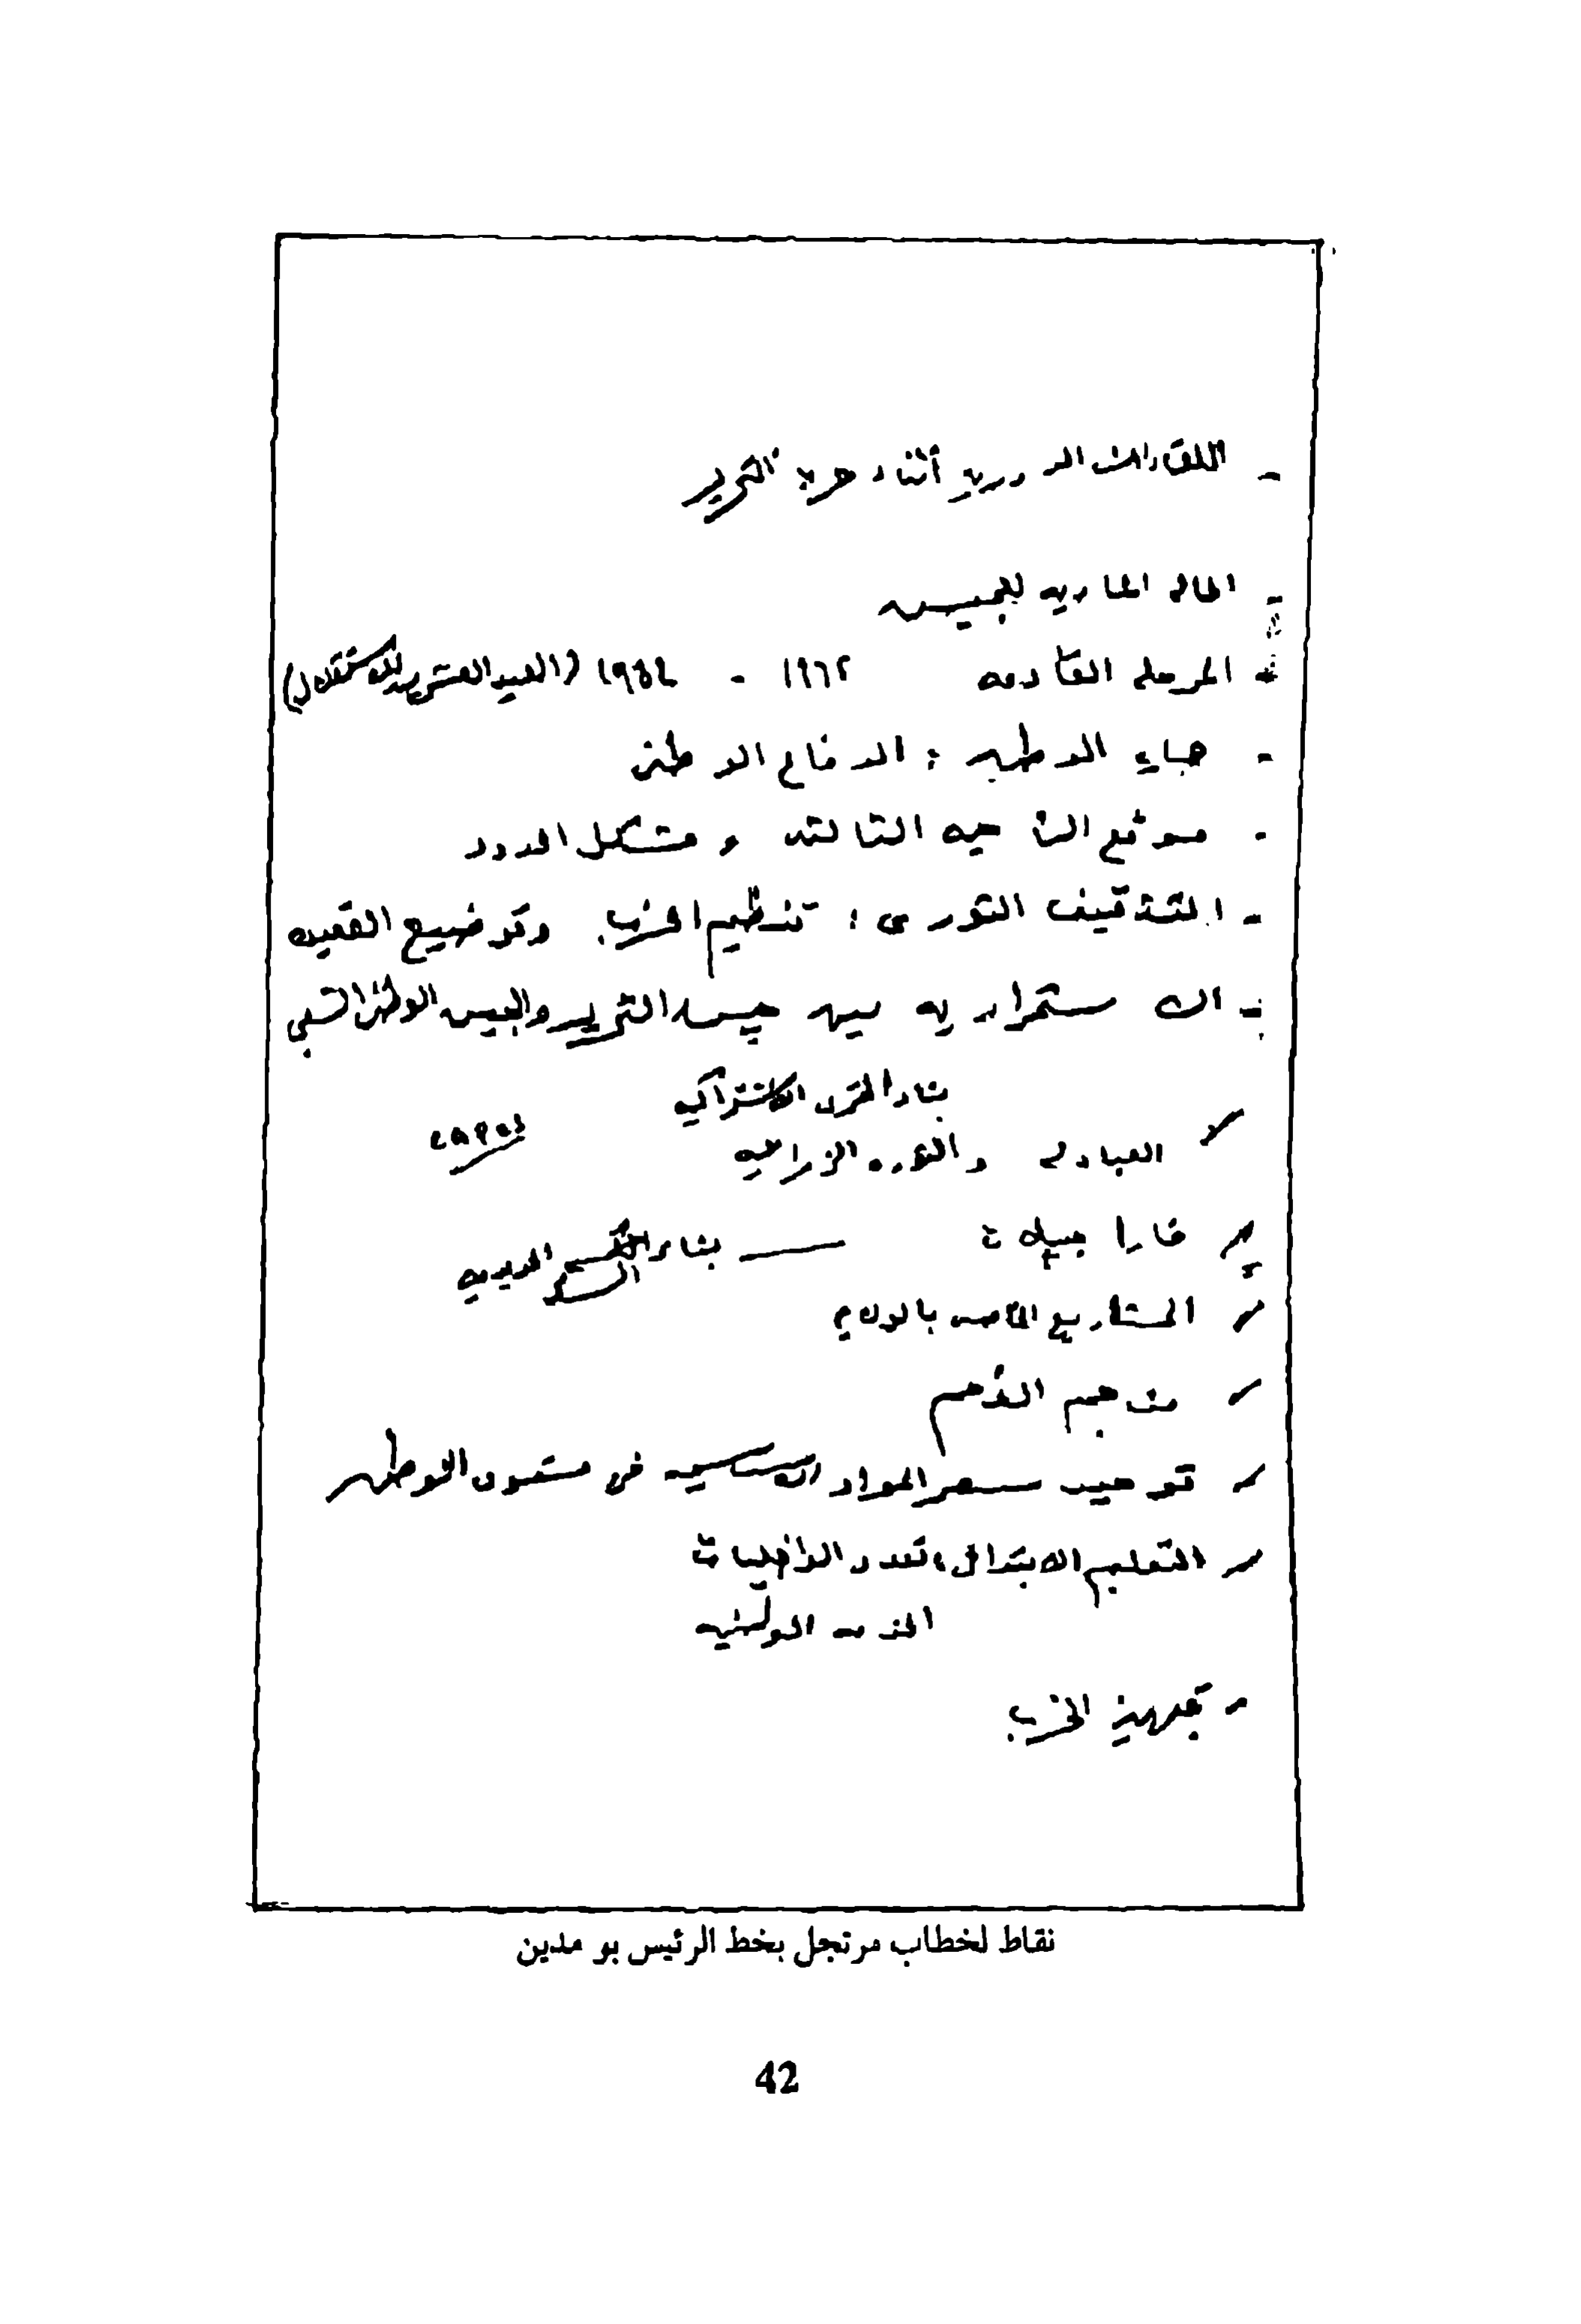 - اللقاءات الدورية أثناء حرب التحرير
- الحالة الحاضرية للجيش
- المرحلة القادمة ١٩٦٢ - (العيد العشرين للاستقلال)
- حماية الوطن : الدفاع الوطني
- موقع الناحية الثالثة و مشكل الحدود
- التثقيف الثوري : تنظيم الحزب وتوضيح العقيدة
- الاستمرارية بين جيش التحرير والجيش الوطني الشعبي
بناء القرى الاشتراكية
العبادلة والثورة الزراعية
خارا جبيلات — بناء السكة الحديدية
المشاريع الخاصة بالولاية
مناجم الفحم
توحيد سعر المواد الأساسية في مستوى الوطن
التعليم الابتدائي، تعدد الداخليات
الخدمة الوطنية
- تجهيز الحزب
نقاط لخطاب مرتجل بخط الرئيس بو مدين
42